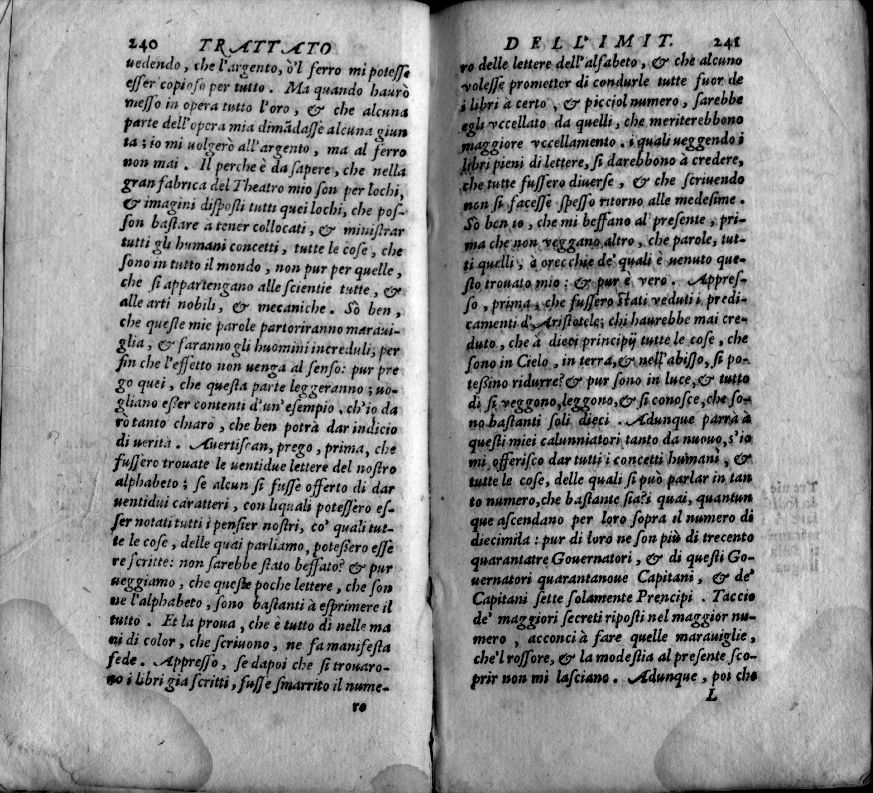 240 TRATTATO
uedendo, che l'argento, ò'l ferro mi potesse
esser copioso per tutto. Ma quando haurò
messo in opera tutto l'oro, & che alcuna
parte dell'opera mia dimādasse alcuna giun
ta; io mi uolgerò all'argento, ma al ferro
non mai. Il perche è da sapere, che nella
gran fabrica del Theatro mio son per lochi,
& imagini disposti tutti quei lochi, che pos-
son bastare a tener collocati, & ministrar
tutti gli humani concetti, tutte le cose, che
sono in tutto il mondo, non pur per quelle,
che si appartengano alle scientie tutte, &
alle arti nobili, & mecaniche. Sò ben,
che queste mie parole partoriranno meraui-
glia, & faranno gli huomini increduli, per
fin che l'effetto non uenga al senso: pur pre
go quei, che questa parte leggeranno; uo-
gliano esser contenti d'un'esempio, ch'io da
rò tanto chiaro, che ben potrà dar indicio
di uerità. Auertiscan, prego, prima, che
fussero trouate le uentidue lettere del nostro
alphabeto; se alcun si fusse offerto di dar
uentidui caratteri, con liquali potessero es-
ser notati tutti i pensier nostri, co' quali tut-
te le cose, delle quai parliamo, potessero esse
re scritte: non sarebbe stato beffato? & pur
ueggiamo, che queste poche lettere, che son
ne l'alphabeto, sono bastanti à esprimere il
tutto. Et la proua, che è tutto dì nelle ma
ni di color, che scriuono, ne fa manifesta
fede. Appresso, se dapoi che si trouaro-
no i libri gia scritti, fusse smarrito il nume-
ro
DELL'IMIT. 241
ro delle lettere dell'alfabeto, & che alcuno
volesse prometter di condurle tutte fuor de
i libri à certo, & picciol numero, sarebbe
egli vccellato da quelli, che meriterebbono
maggiore vccellamento. i quali ueggendo i
libri pieni di lettere, si darebbono à credere,
che tutte fussero diuerse, & che scriuendo
non si facesse spesso ritorno alle medesime.
Sò ben io, che mi beffano al presente, pri-
ma che non veggano altro, che parole, tut-
ti quelli, à orecchie de' quali è uenuto que-
sto trouato mio: & pur è vero. Appres-
so, prima, che fussero stati veduti i predi-
camenti d'Aristotele; chi haurebbe mai cre-
duto, che à dieci principij tutte le cose, che
sono in Cielo, in terra, & nell'abisso, si po-
tessino ridurre? & pur sono in luce, & tutto
dì si veggono, leggono, & si conosce, che so-
no bastanti soli dieci. Adunque parrà à
questi miei calunniatori tanto da nuouo, s'io
mi offerisco dar tutti i concetti humani, &
tutte le cose, delle quali si può parlar in tan
to numero, che bastante sia? i quai, quantun
que ascendano per loro sopra il numero di
diecimila: pur di loro ne son più di trecento
quarantatre Gouernatori, & di questi Go-
uernatori quarantanoue Capitani, & de'
Capitani sette solamente Prencipi. Taccio
de' maggiori secreti riposti nel maggior nu-
mero, acconci à fare quelle marauiglie,
che'l rossore, & la modestia al presente sco-
prir non mi lasciano. Adunque, poi che
L